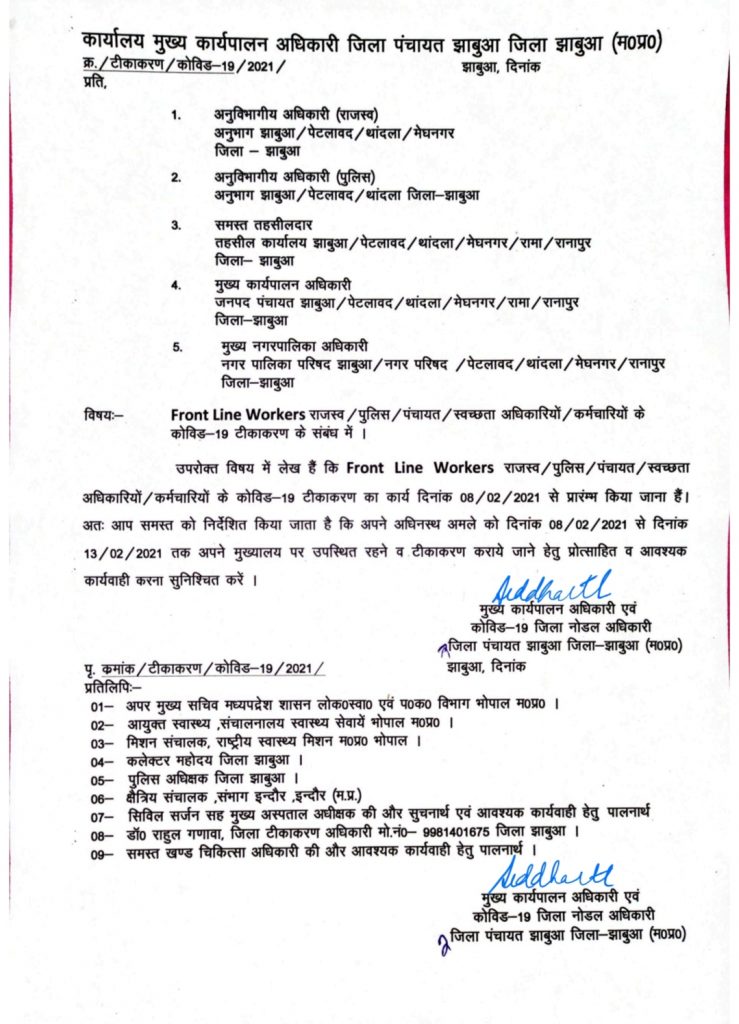 कार्यालय मुख्य कार्यपालन अधिकारी जिला पंचायत झाबुआ जिला झाबुआ (म0प्र0)
क्र./टीकाकरण/कोविड–19/2021/ झाबुआ, दिनांक
प्रति,
1. अनुविभागीय अधिकारी (राजस्व)
अनुभाग झाबुआ/पेटलावद/थांदला/मेघनगर
जिला – झाबुआ
2. अनुविभागीय अधिकारी (पुलिस)
अनुभाग झाबुआ/पेटलावद/थांदला जिला–झाबुआ
3. समस्त तहसीलदार
तहसील कार्यालय झाबुआ/पेटलावद/थांदला/मेघनगर/रामा/रानापुर
जिला– झाबुआ
4. मुख्य कार्यपालन अधिकारी
जनपद पंचायत झाबुआ/पेटलावद/थांदला/मेघनगर/रामा/रानापुर
जिला–झाबुआ
5. मुख्य नगरपालिका अधिकारी
नगर पालिका परिषद झाबुआ/नगर परिषद /पेटलावद/थांदला/मेघनगर/रानापुर
जिला–झाबुआ
विषयः– Front Line Workers राजस्व/पुलिस/पंचायत/स्वच्छता अधिकारियों/कर्मचारियों के
कोविड–19 टीकाकरण के संबंध में ।
उपरोक्त विषय में लेख हैं कि Front Line Workers राजस्व/पुलिस/पंचायत/स्वच्छता
अधिकारियों/कर्मचारियों के कोविड–19 टीकाकरण का कार्य दिनांक 08/02/2021 से प्रारंम्भ किया जाना हैं।
अतः आप समस्त को निर्देशित किया जाता है कि अपने अधिनस्थ अमले को दिनांक 08/02/2021 से दिनांक
13/02/2021 तक अपने मुख्यालय पर उपस्थित रहने व टीकाकरण कराये जाने हेतु प्रोत्साहित व आवश्यक
कार्यवाही करना सुनिश्चित करें ।
Siddharth
मुख्य कार्यपालन अधिकारी एवं
कोविड–19 जिला नोडल अधिकारी
जिला पंचायत झाबुआ जिला–झाबुआ (म0प्र0)
पृ. कमांक/टीकाकरण/कोविड–19/2021/ झाबुआ, दिनांक
प्रतिलिपिः–
01– अपर मुख्य सचिव मध्यपद्रेश शासन लोक0स्वा0 एवं प0क0 विभाग भोपाल म0प्र0 ।
02– आयुक्त स्वास्थ्य ,संचालनालय स्वास्थ्य सेवायें भोपाल म0प्र0 ।
03– मिशन संचालक, राष्ट्रीय स्वास्थ्य मिशन म0प्र0 भोपाल ।
04– कलेक्टर महोदय जिला झाबुआ ।
05– पुलिस अधिक्षक जिला झाबुआ ।
06– क्षैत्रिय संचालक ,संभाग इन्दौर ,इन्दौर (म.प्र.)
07– सिविल सर्जन सह मुख्य अस्पताल अधीक्षक की और सुचनार्थ एवं आवश्यक कार्यवाही हेतु पालनार्थ
08– डॉ0 राहुल गणावा, जिला टीकाकरण अधिकारी मो.नं0– 9981401675 जिला झाबुआ ।
09– समस्त खण्ड चिकित्सा अधिकारी की और आवश्यक कार्यवाही हेतु पालनार्थ ।
Siddharth
मुख्य कार्यपालन अधिकारी एवं
कोविड–19 जिला नोडल अधिकारी
जिला पंचायत झाबुआ जिला–झाबुआ (म0प्र0)